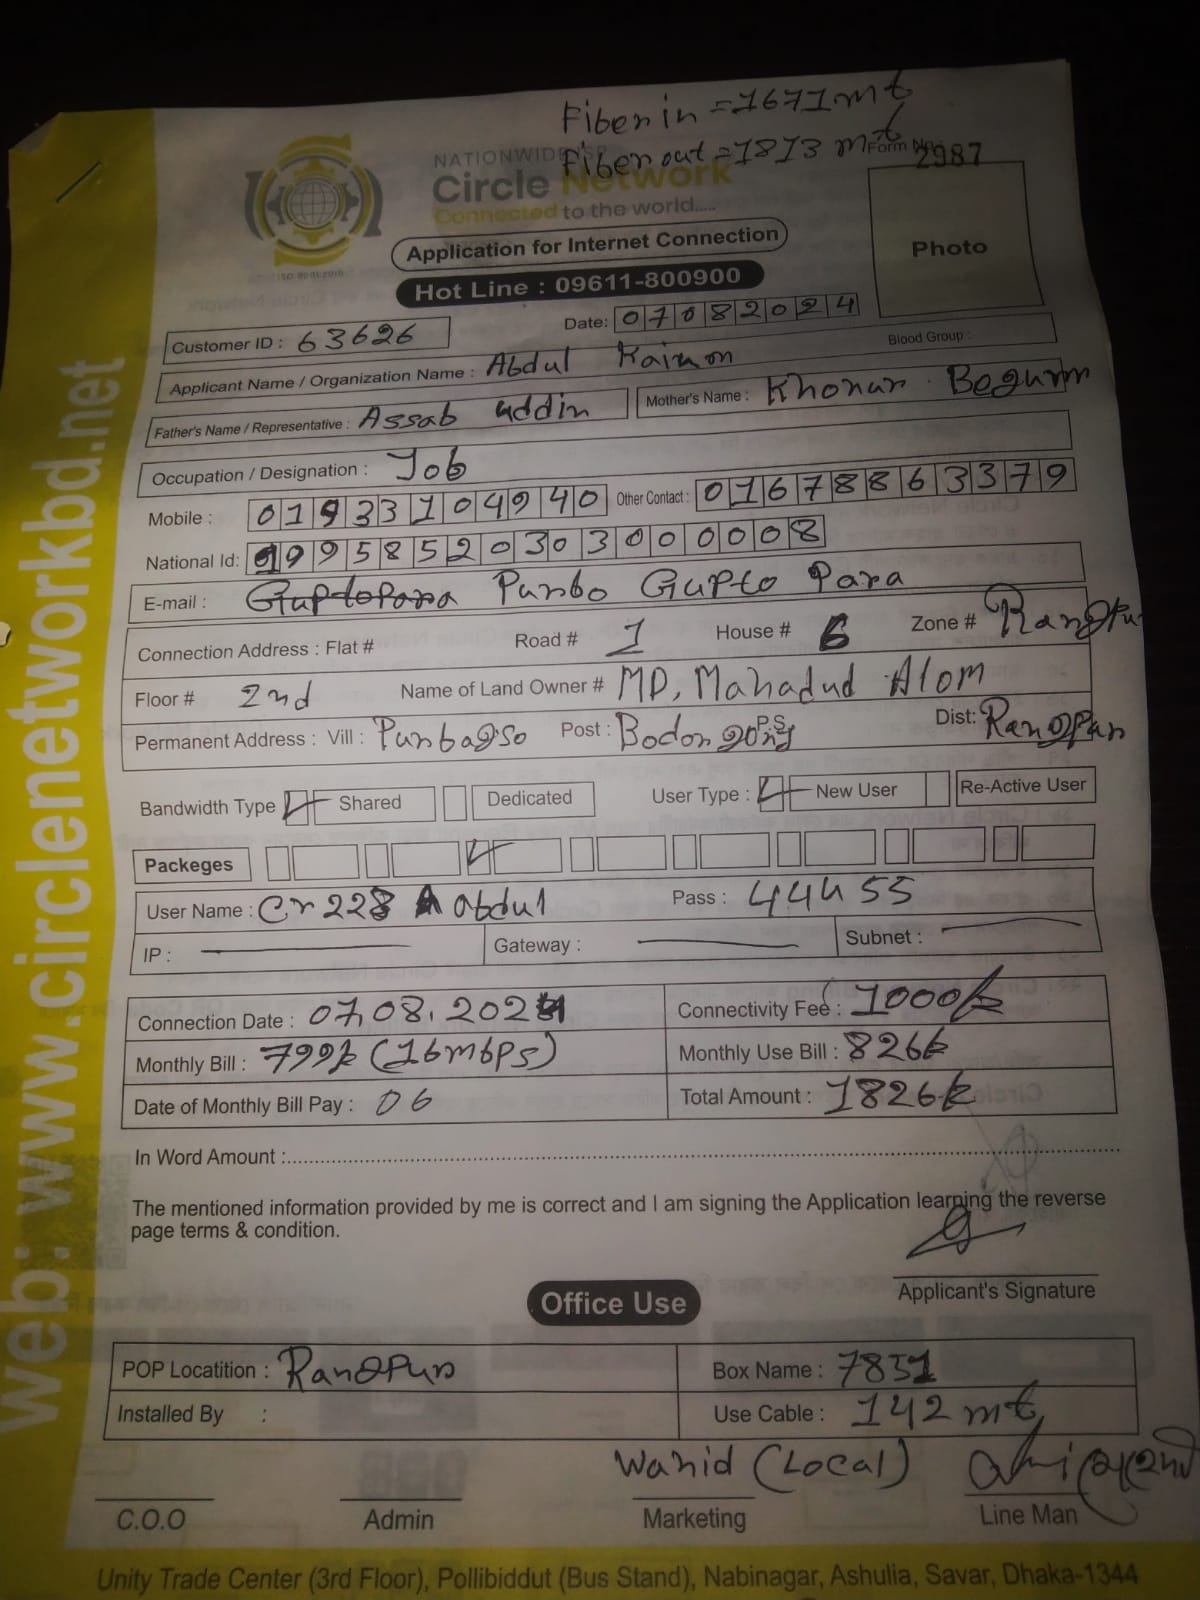 Fiber in = 1671 mt
Fiber out = 1813 mt
Form No. 2987
NATIONWIDE ISP
Circle Network
Connected to the world.....
Application for Internet Connection
Hot Line : 09611-800900
Photo
Date: 07082024
Customer ID : 63626
Blood Group :
Applicant Name / Organization Name : Abdul
Father's Name / Representative : Assab uddin Mother's Name : Begum
Occupation / Designation : Job
Mobile : 01933104940 Other Contact : 01678863379
National Id: 19958520303000008
E-mail : Guptopara Purbo Gupto Para
Connection Address : Flat # Road # 1 House # 6 Zone # Rangpur
Floor # 2nd Name of Land Owner # MD, Mahadud Alom
Permanent Address : Vill : Post : P.S Dist:
Bandwidth Type Shared Dedicated User Type : New User Re-Active User
Packeges
User Name : Cr228 abdul Pass : 44455
IP : Gateway : Subnet :
Connection Date : 07.08.2024 Connectivity Fee : 1000
Monthly Bill : 799 (16mbps) Monthly Use Bill : 826
Date of Monthly Bill Pay : 06 Total Amount : 1826
In Word Amount :
The mentioned information provided by me is correct and I am signing the Application learning the reverse
page terms & condition.
Applicant's Signature
Office Use
POP Locatition : Rangpur Box Name : 7831
Installed By : Use Cable : 142 mt
Wahid (Local)
C.O.O Admin Marketing Line Man
Unity Trade Center (3rd Floor), Pollibiddut (Bus Stand), Nabinagar, Ashulia, Savar, Dhaka-1344
web: www.circlenetworkbd.net